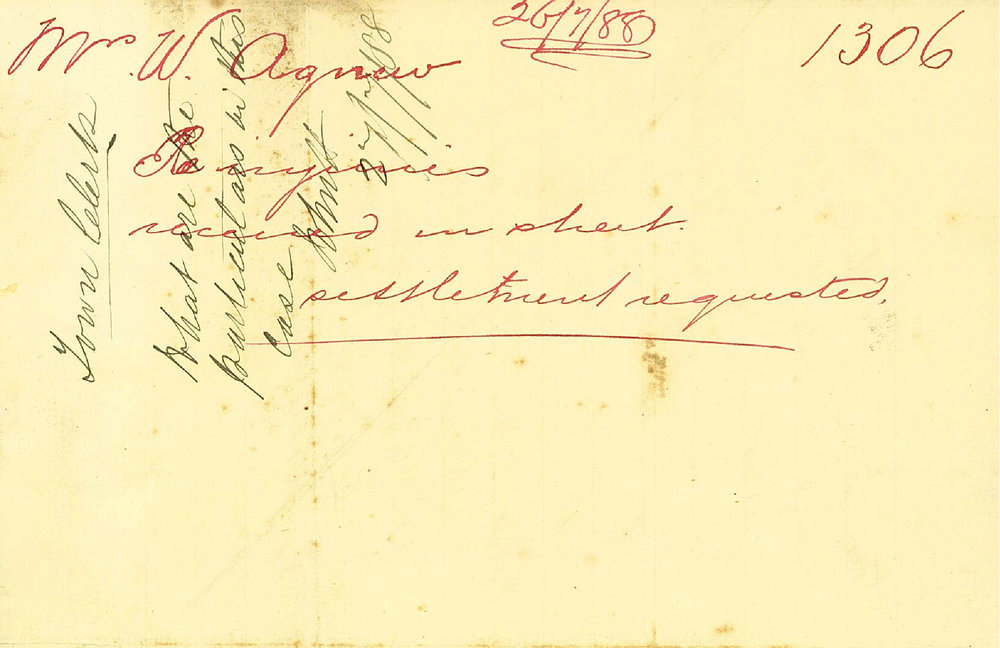 26/7/88
1306
Mrs W. Agnew
Re injuries
received in street.
settlement requested.
Town Clerk
What are the
particulars in this
case
27/7/88